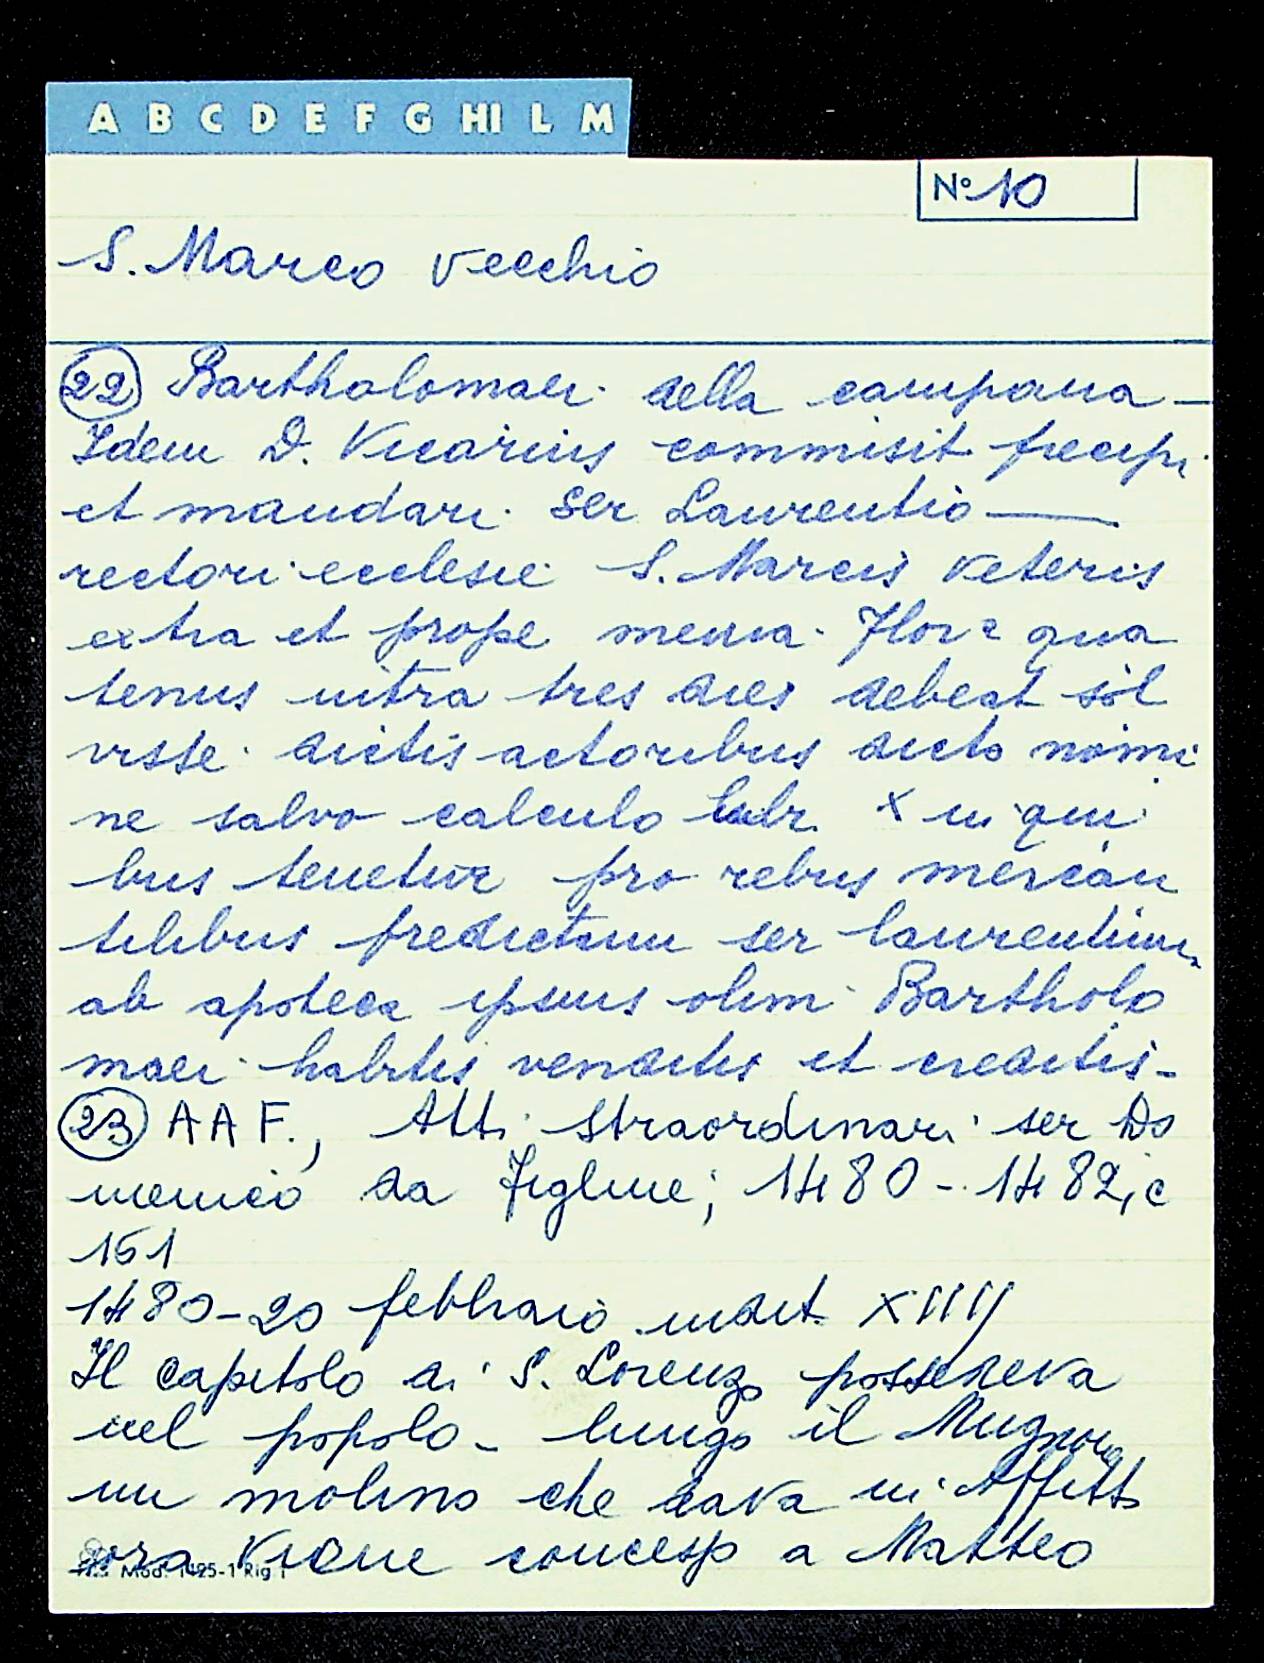 A B C D E F G HI L M
N° 10
S. Marco Vecchio
22 Bartholomaei della campana -
Idem D. Vicarius commisit precipi
et mandari ser Laurentio —
rectori ecclesie S. Marcis Veteris
extra et prope menia Flor. qua
tenus infra tres dies debeat sol
visse dictis actoribus dicto nomi
ne salvo calculo X in qui
bus tenetur pro rebus mercan
tilibus predictum ser laurentium
ab apoteca ipsius olim Bartholo
maei habitis venditis et creditis -
23 A A F., Atti straordinari ser Do
menico da Figline; 1480 - 1482, c
151
1480 - 20 febbraio indict. XIIIJ
Il capitolo di S. Lorenzo possedeva
nel popolo - lungo il Mugnone
un molino che dava in Affitto
ora viene concesso a Matteo
Mod. 1425-1 Rig.1